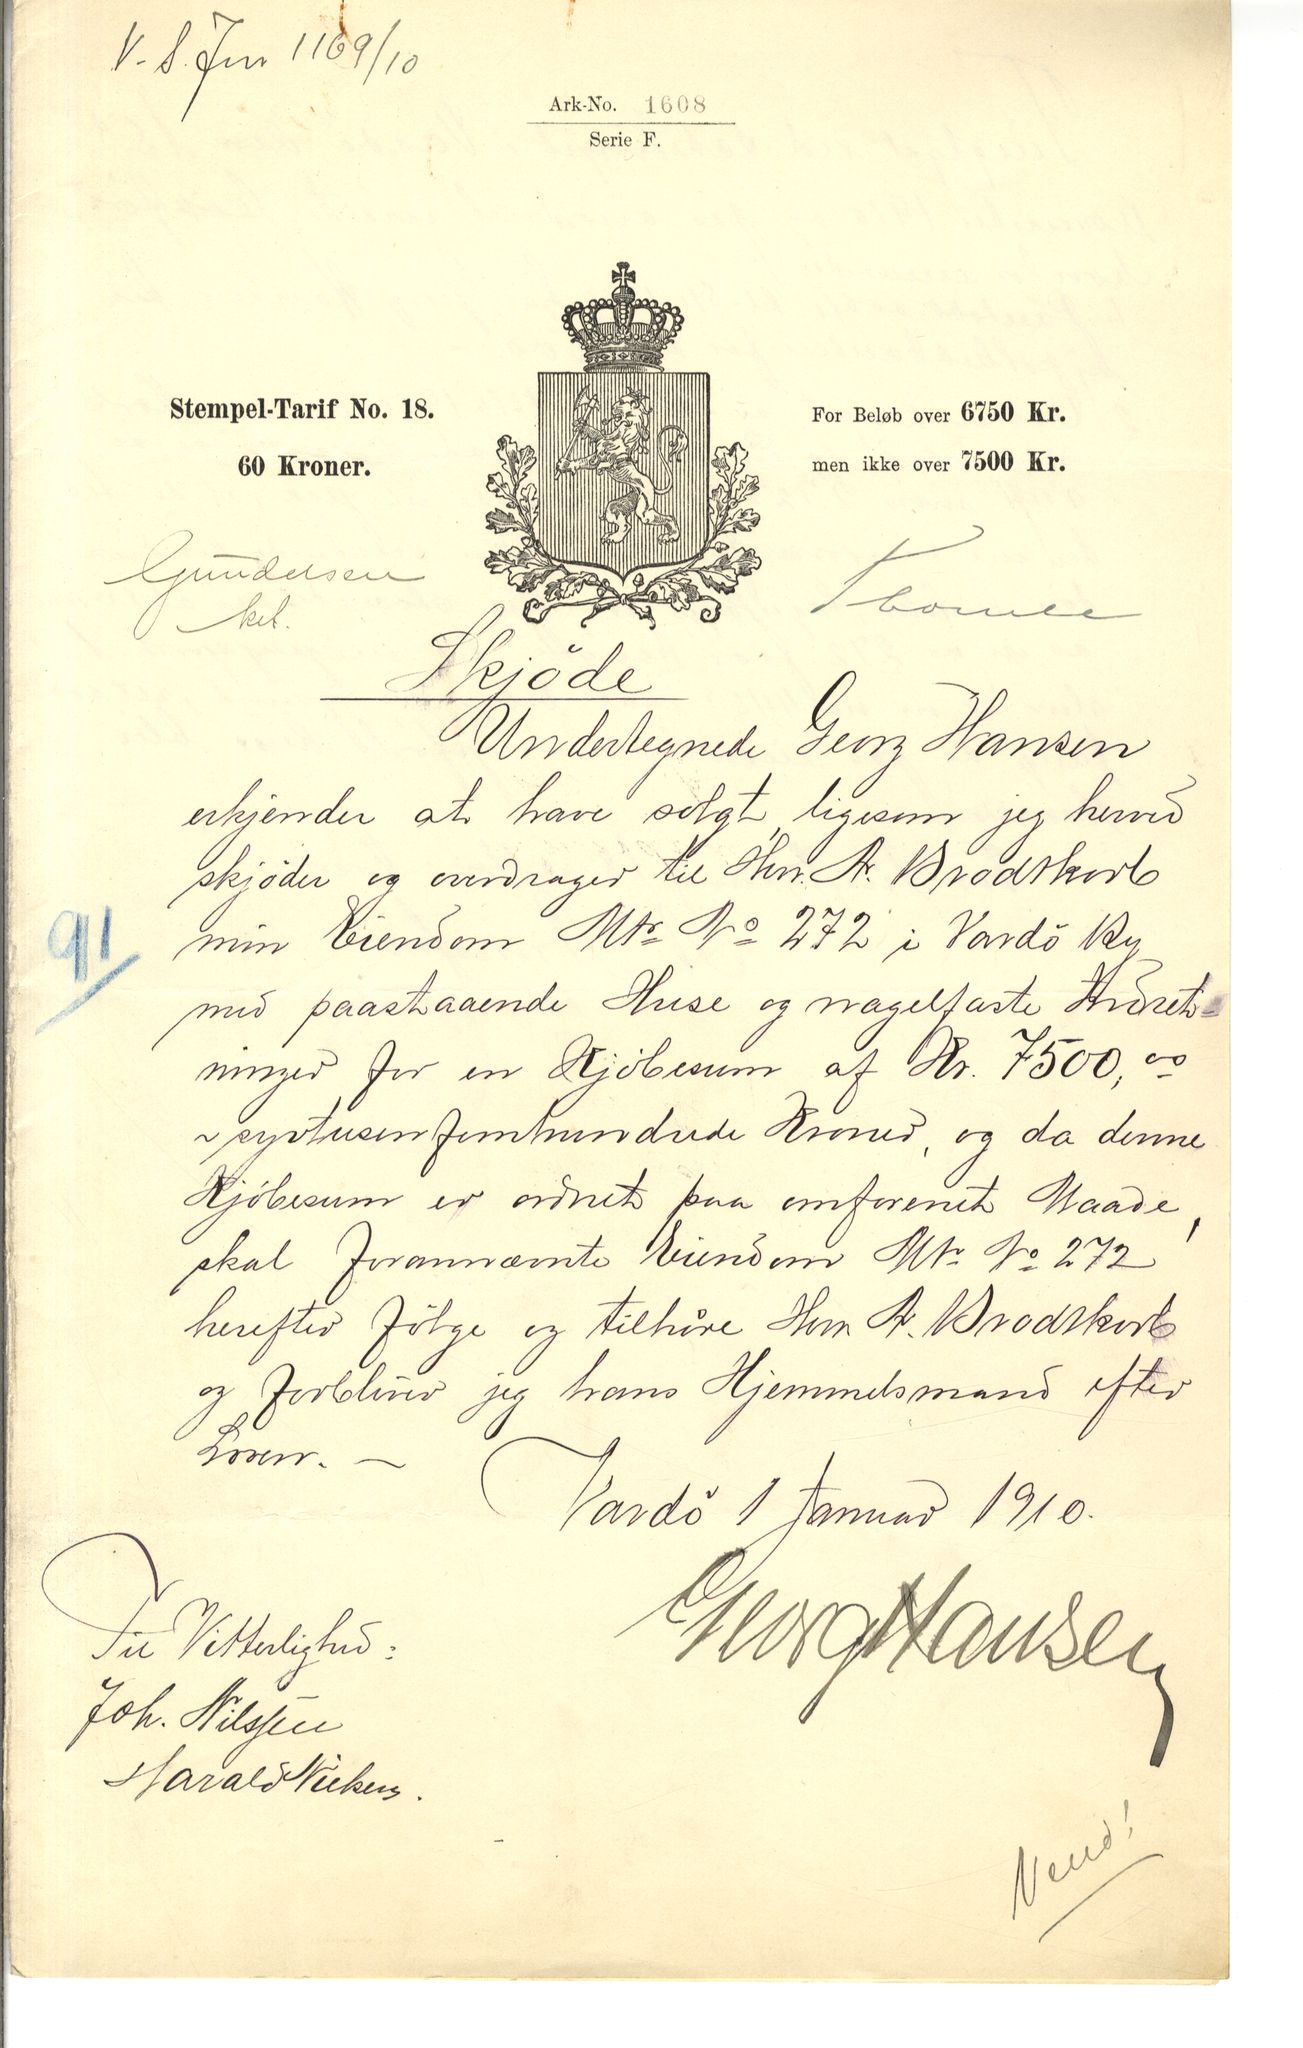 V. S. Jnr 1169/10
Ark-No. 1608
Serie F.
Stempel-Tarif No. 18.
60 Kroner.
For Beløb over 6750 Kr.
men ikke over 7500 Kr.
Gundersen
Skjöde
Undertegnede Georg Hansen
erkjender at have solgt, ligesom jeg herved
skjöder og overdrager til Herr A. Brodtkorb
min Eiendom Mtr No 272 i Vardö By
med paastaaende Huse og nagelfaste Indret-
ninger for en Kjöbesum af Kr. 7500,00
~ syvtusenfemhundrede Kroner, og da denne
Kjöbesum er ordnet paa omforenet Maade,
skal forannævnte Eiendom Mtr No 272
herefter følge og tilhøre Herr A. Brodtkorb
og forbliver jeg hans Hjemmelsmand efter
Loven. ~
Vardö 1 Januar 1910.
Georg Hansen
Til Vitterlighed:
Joh. Nilssen
Harald
Vend!
91